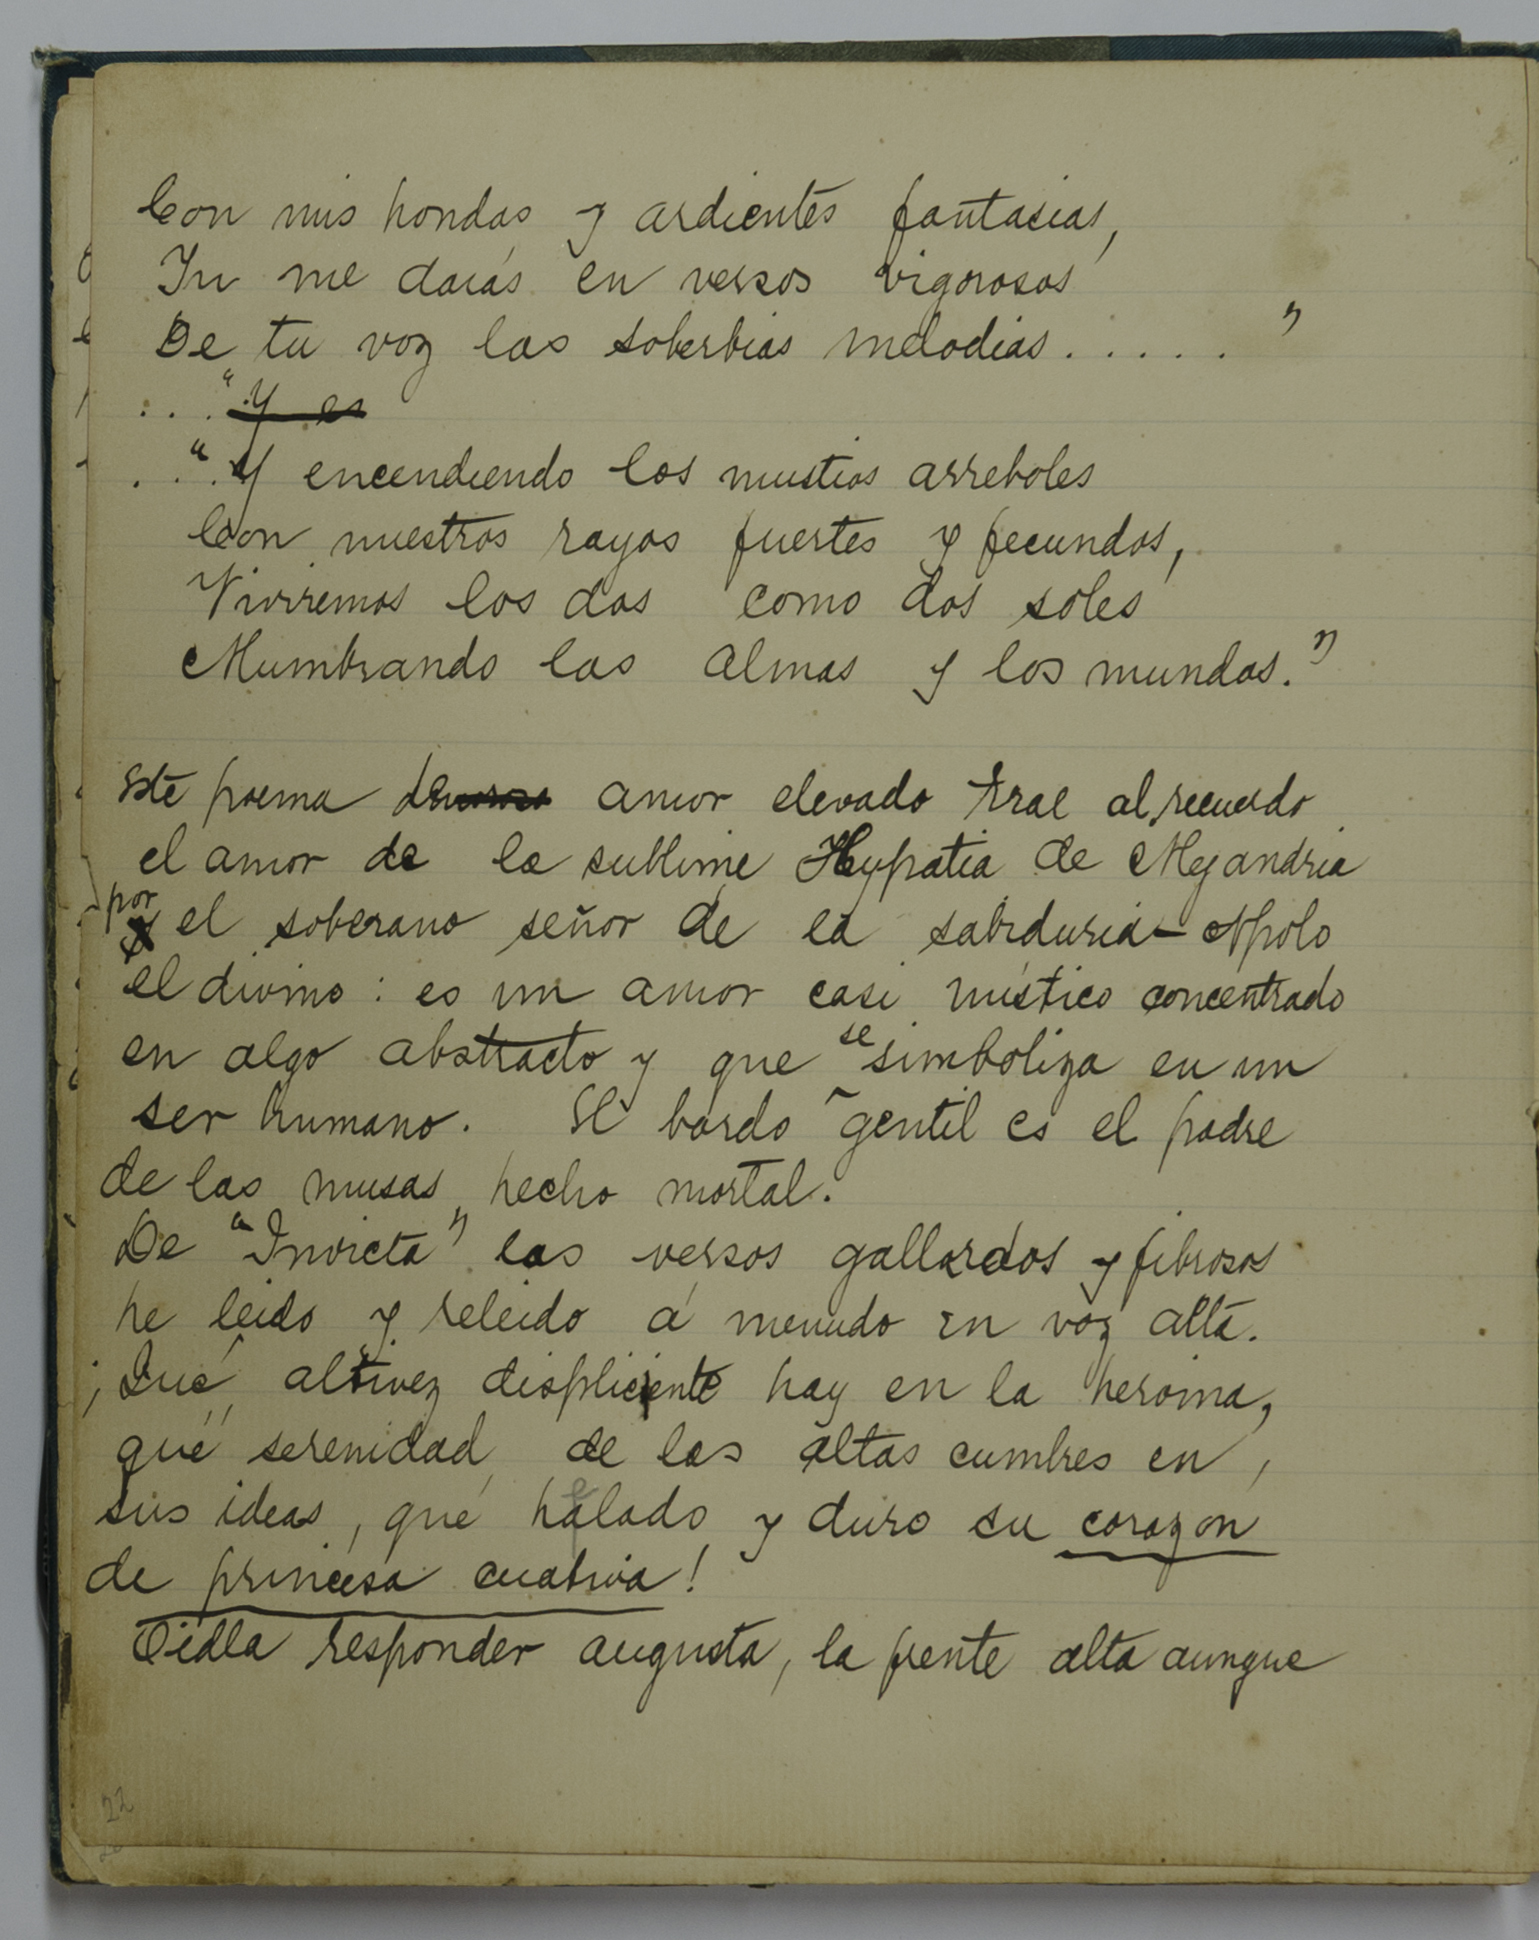 Con mis hondas y ardientes fantasias,
Tu me darás en versos vigorosos
De tu voz las soberbias melodias . . . . . "
. . . "Y es
. . . "Y encendiendo los mustios arreboles
Con nuestros rayos fuertes y fecundos,
Viviremos los dos como dos soles
Alumbrando las almas y los mundos."
Este poema de amor elevado trae al recuerdo
el amor de la sublime Hypatia de Alejandria
por el soberano señor de la sabiduria - Apolo
el divino : es un amor casi místico concentrado
en algo abstracto y que se simboliza en un
ser humano. El bardo gentil es el padre
de las musas hecho mortal.
De "Invicta" los versos gallardos y fibrosos
he leido y releido á menudo en voz alta.
¡Qué altivez displicente hay en la heroina,
qué serenidad de las altas cumbres en
sus ideas, qué helado y duro su corazon
de princesa cuativa!
Oidla responder augusta, la frente alta aunque
22